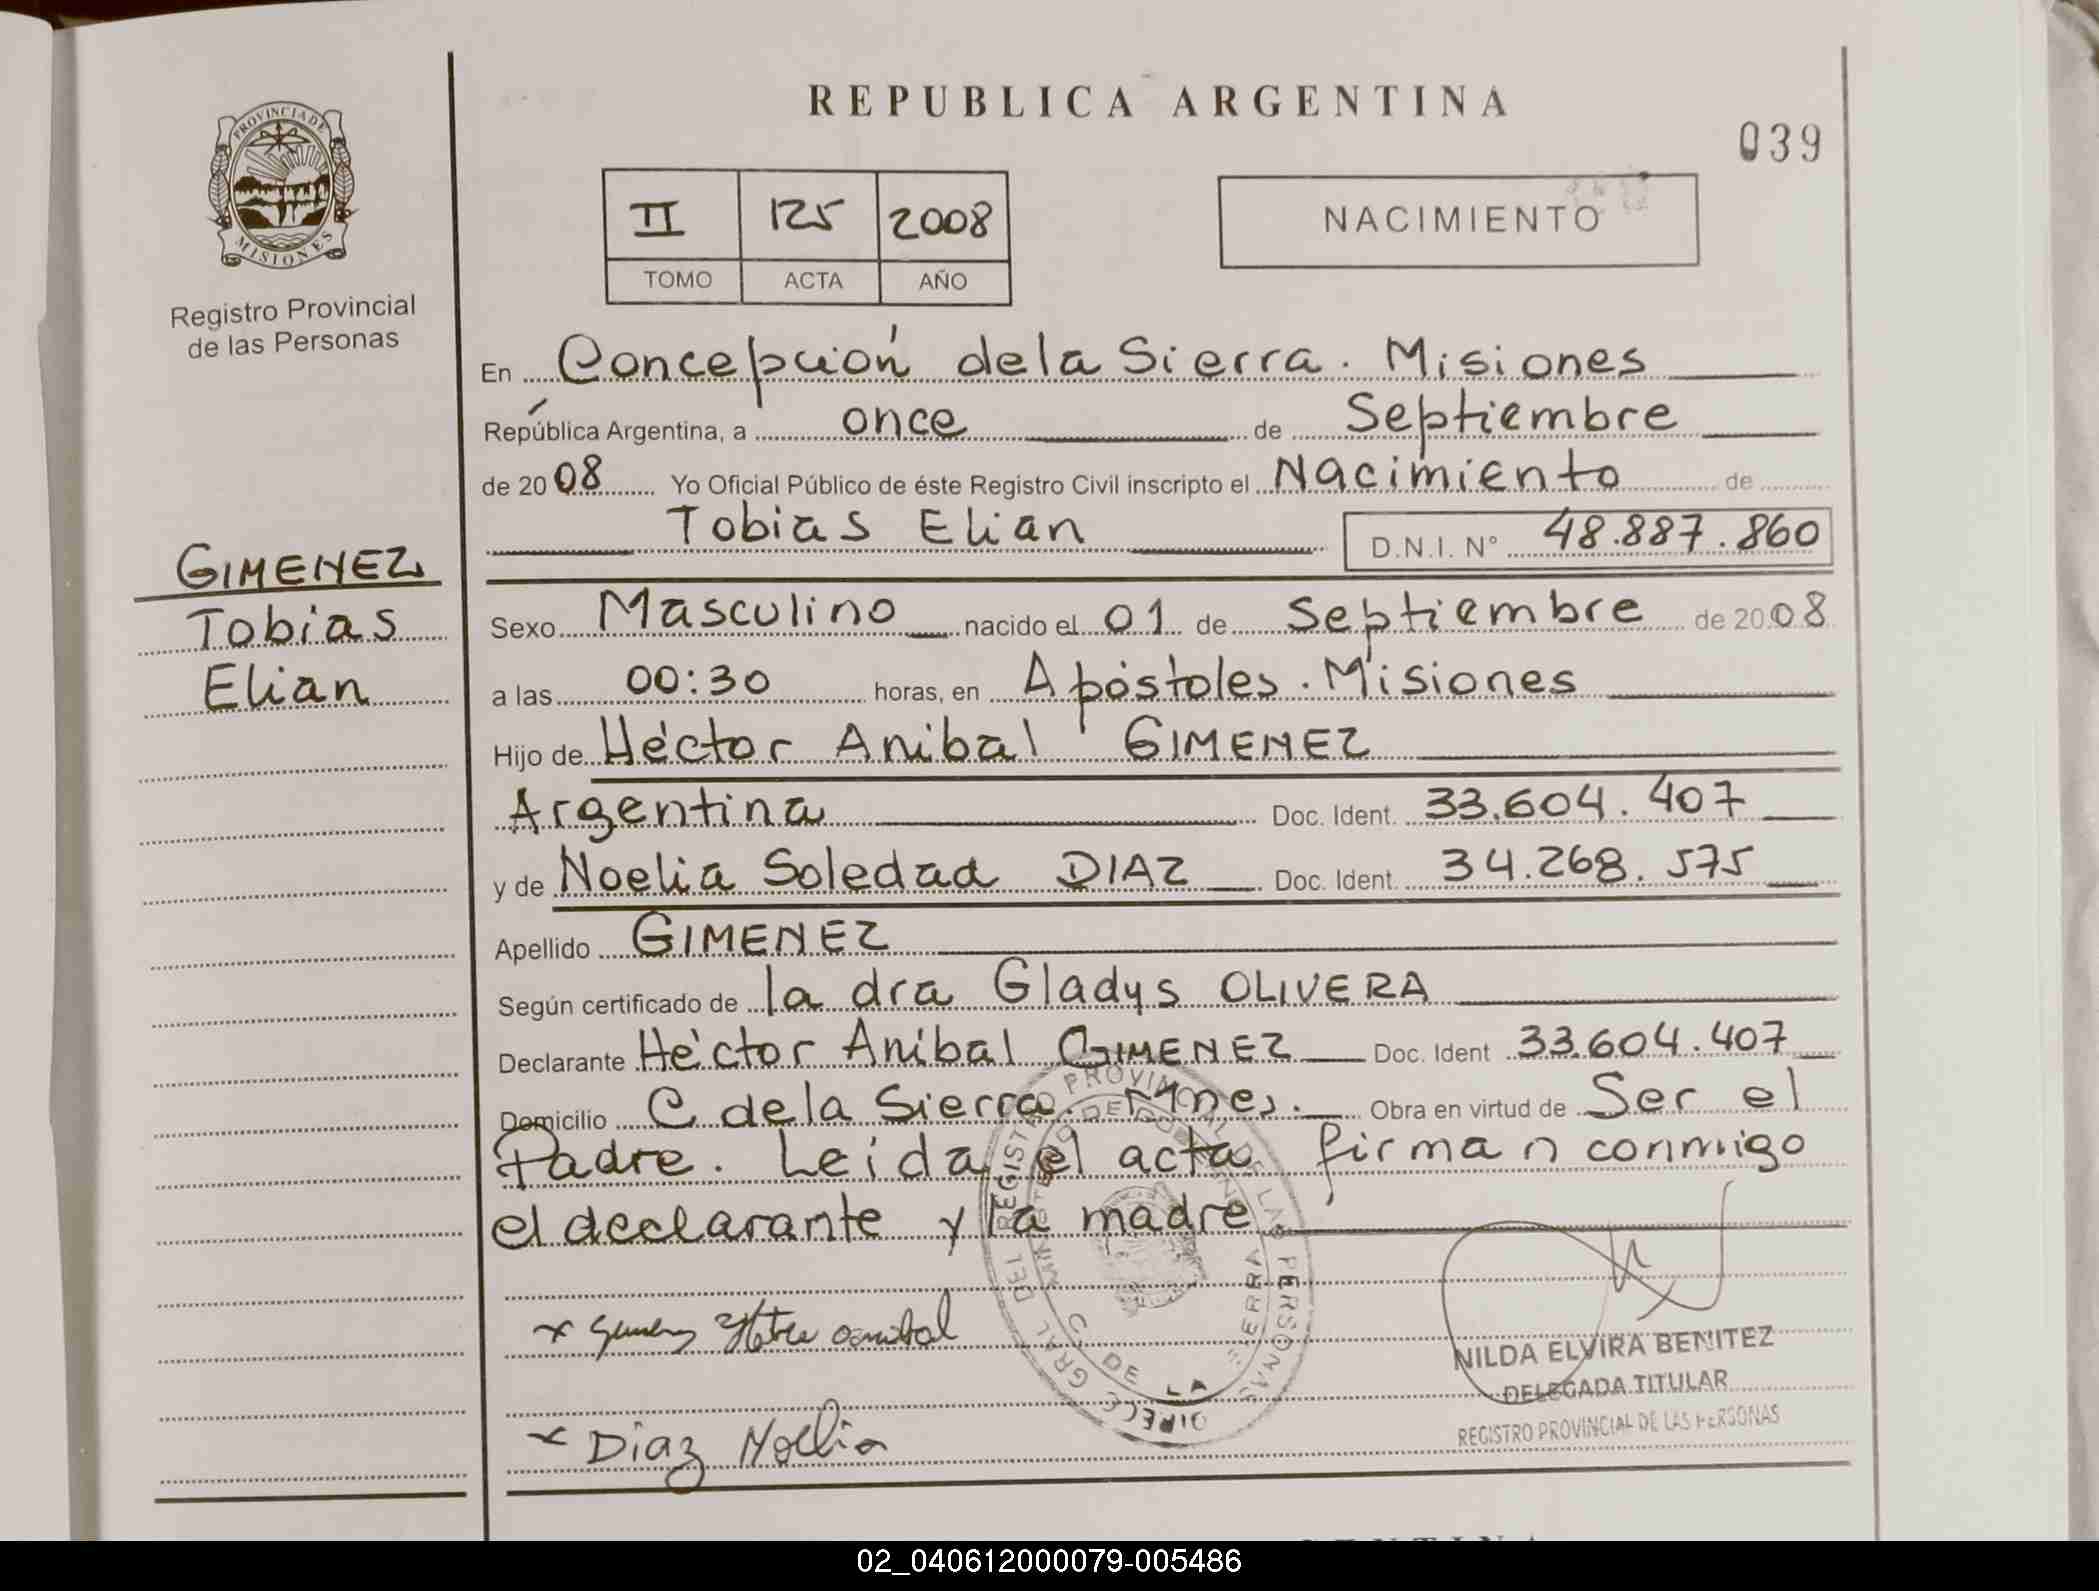 REPUBLICA ARGENTINA
039
PROVINCIA DE
MISIONES
Registro Provincial
de las Personas
II 125 2008
TOMO ACTA AÑO
NACIMIENTO
En Concepción de la Sierra. Misiones
República Argentina, a once de Septiembre
de 2008 Yo Oficial Público de éste Registro Civil inscripto el Nacimiento de
Tobias Elian D.N.I. N° 48.887.860
GIMENEZ
Tobias
Elian
Sexo Masculino nacido el 01 de Septiembre de 2008
a las 00:30 horas, en Apóstoles. Misiones
Hijo de Héctor Anibal GIMENEZ
Argentina Doc. Ident. 33.604.407
y de Noelia Soledad DIAZ Doc. Ident. 34.268.575
Apellido GIMENEZ
Según certificado de la dra Gladys OLIVERA
Declarante Héctor Anibal GIMENEZ Doc. Ident 33.604.407
Domicilio C de la Sierra. Mnes. Obra en virtud de Ser el
Padre. Leida el acta firman conmigo
el declarante y la madre
DIRECC GRAL DEL REGISTRO PROVINCIAL DE LAS PERSONAS
C. DE LA SIERRA
x Anibal
x Diaz Noelia
NILDA ELVIRA BENITEZ
DELEGADA TITULAR
REGISTRO PROVINCIAL DE LAS PERSONAS
02_040612000079-005486